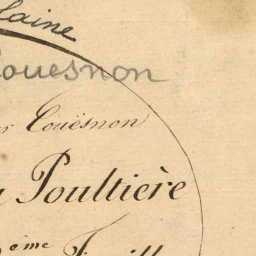 laine
ouesnon
r Couësnon
Poultière
ème